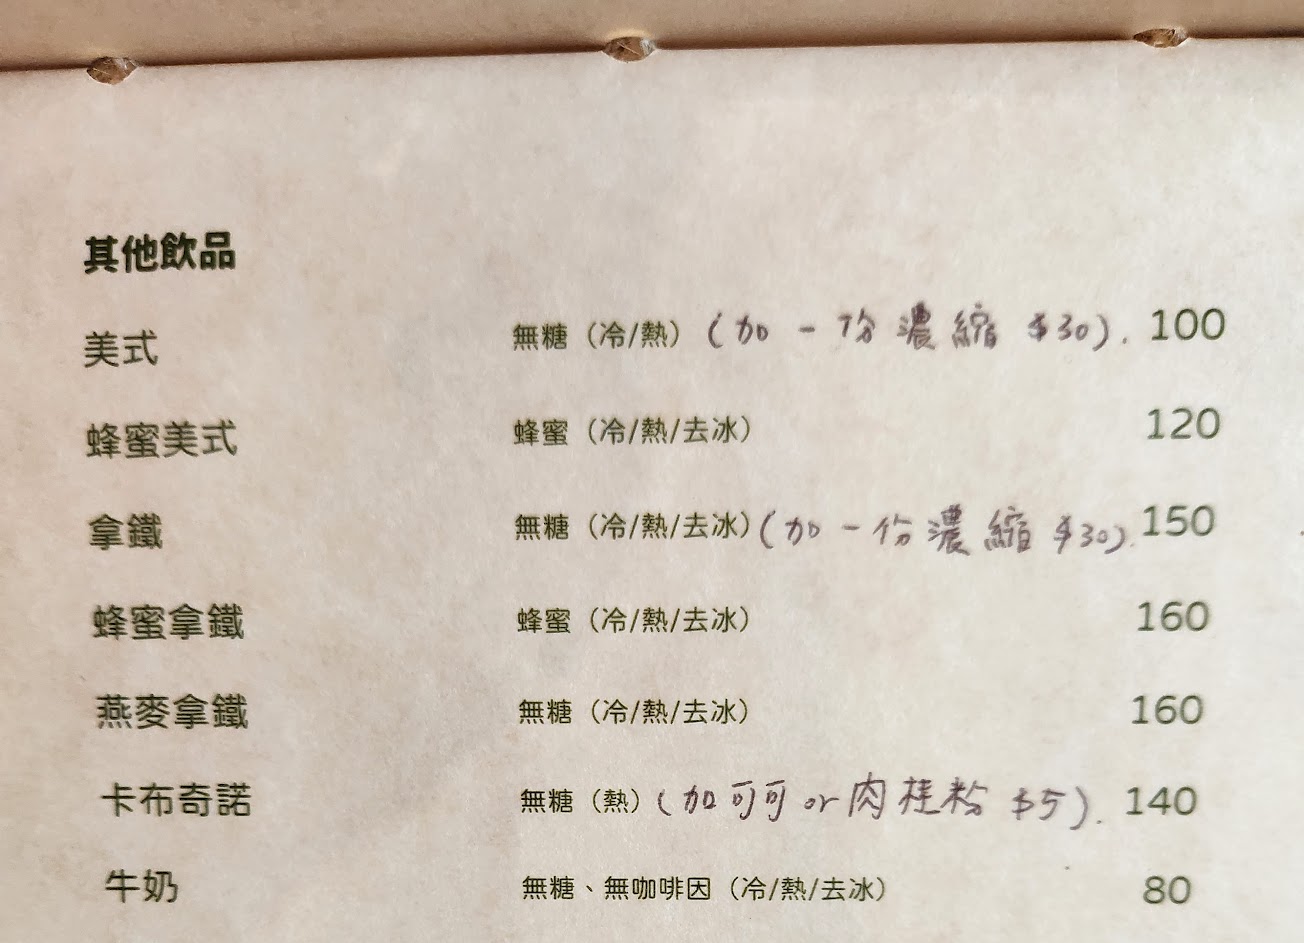 其他飲品
美式 無糖（冷/熱）(加一份濃縮 $30). 100
蜂蜜美式 蜂蜜（冷/熱/去冰） 120
拿鐵 無糖（冷/熱/去冰）(加一份濃縮 $30). 150
蜂蜜拿鐵 蜂蜜（冷/熱/去冰） 160
燕麥拿鐵 無糖（冷/熱/去冰） 160
卡布奇諾 無糖（熱）(加可可 or 肉桂粉 $5). 140
牛奶 無糖、無咖啡因（冷/熱/去冰） 80